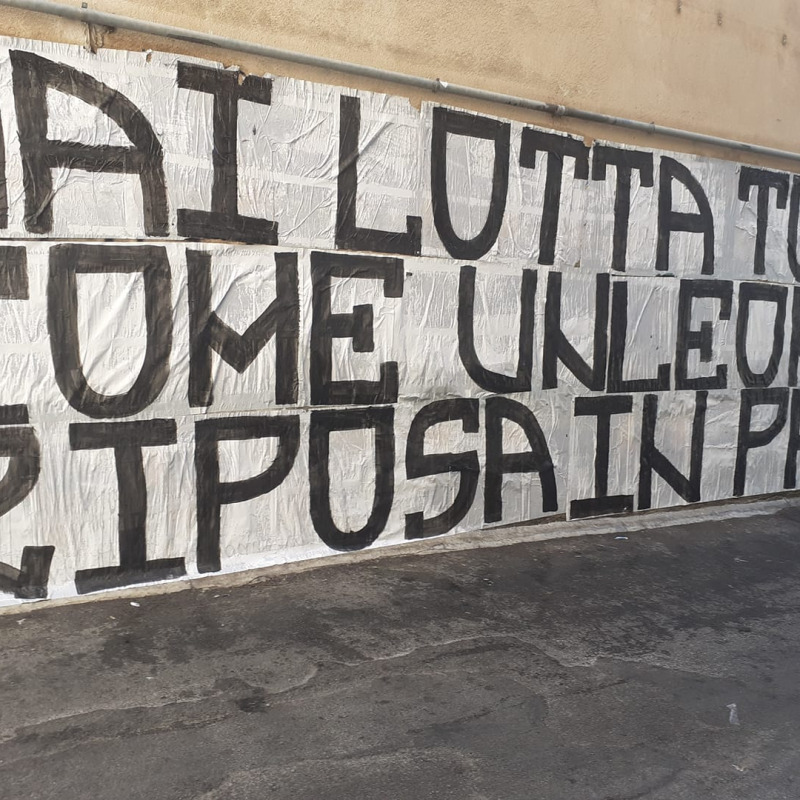 AI LOTTA TU
COME UN LEO
RIPOSA IN PA